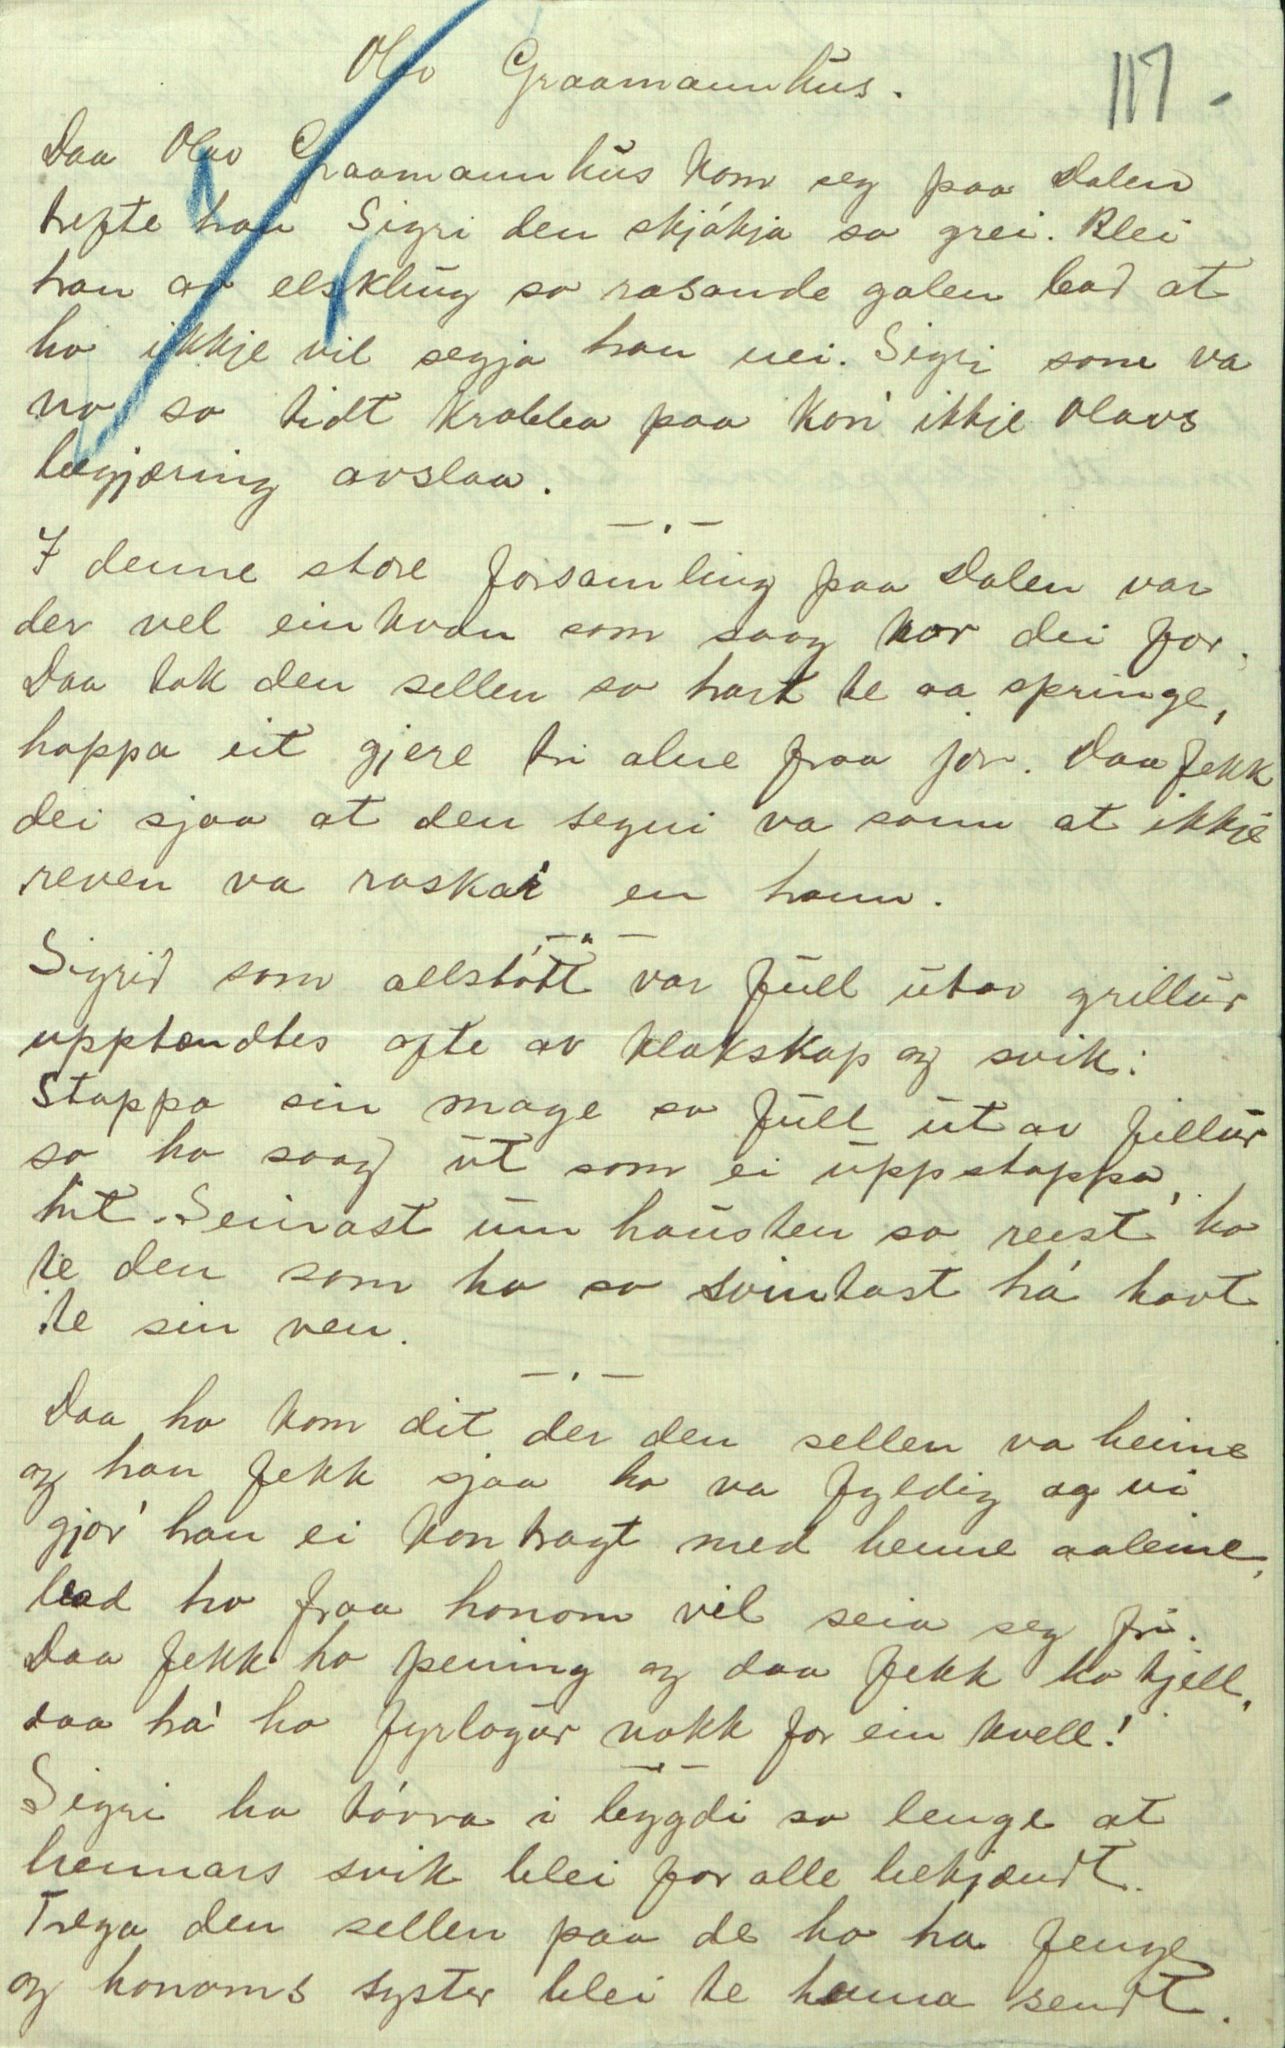 Olav Graamannhus.
117 -
Daa Olav Graamannhus kom seg paa Dalen
trefte han Sigri den skjåkja so grei. Blei
han av elskhug so rasande galen bad at
ho ikkje vil segja han nei. Sigri som va
no so tidt krabba paa kon' ikkje Olavs
begjæring avslaa.
I denne store forsamling paa Dalen var
der vel einkvan som saag kor dei for.
Daa tok den sellen so hart te aa springe,
hoppa eit gjere tri alne fraa jor. Daa fekk
dei sjaa at den segni va sann at ikkje
reven va raskar en hann.
Sigrid som allstøtt var full utav grillur
upptendtes ofte av klokskap og svik:
Stappa sin mage so full utav fillur
so ho saag ut som ei uppstappa,
tit. Seinast um hausten so reist' ho
te den som ho so svintast há havt
te sin ven.
Daa ho kom dit der den sellen va heime
og han fekk sjaa ho va fyldig og vi
gjor' han ei kontragt med henne aaleine,
bad ho fraa honom vil seia seg fri.
Daa fekk ho pening og daa fekk ho kjell,
saa há ho fyrlogur nokk for ein kvell!
Sigri ho tórra i bygdi so lenge at
hennars svik blei for alle bekjændt.
Trega den sellen paa de ho ha fenge
og honoms syster blei te henna sendt.